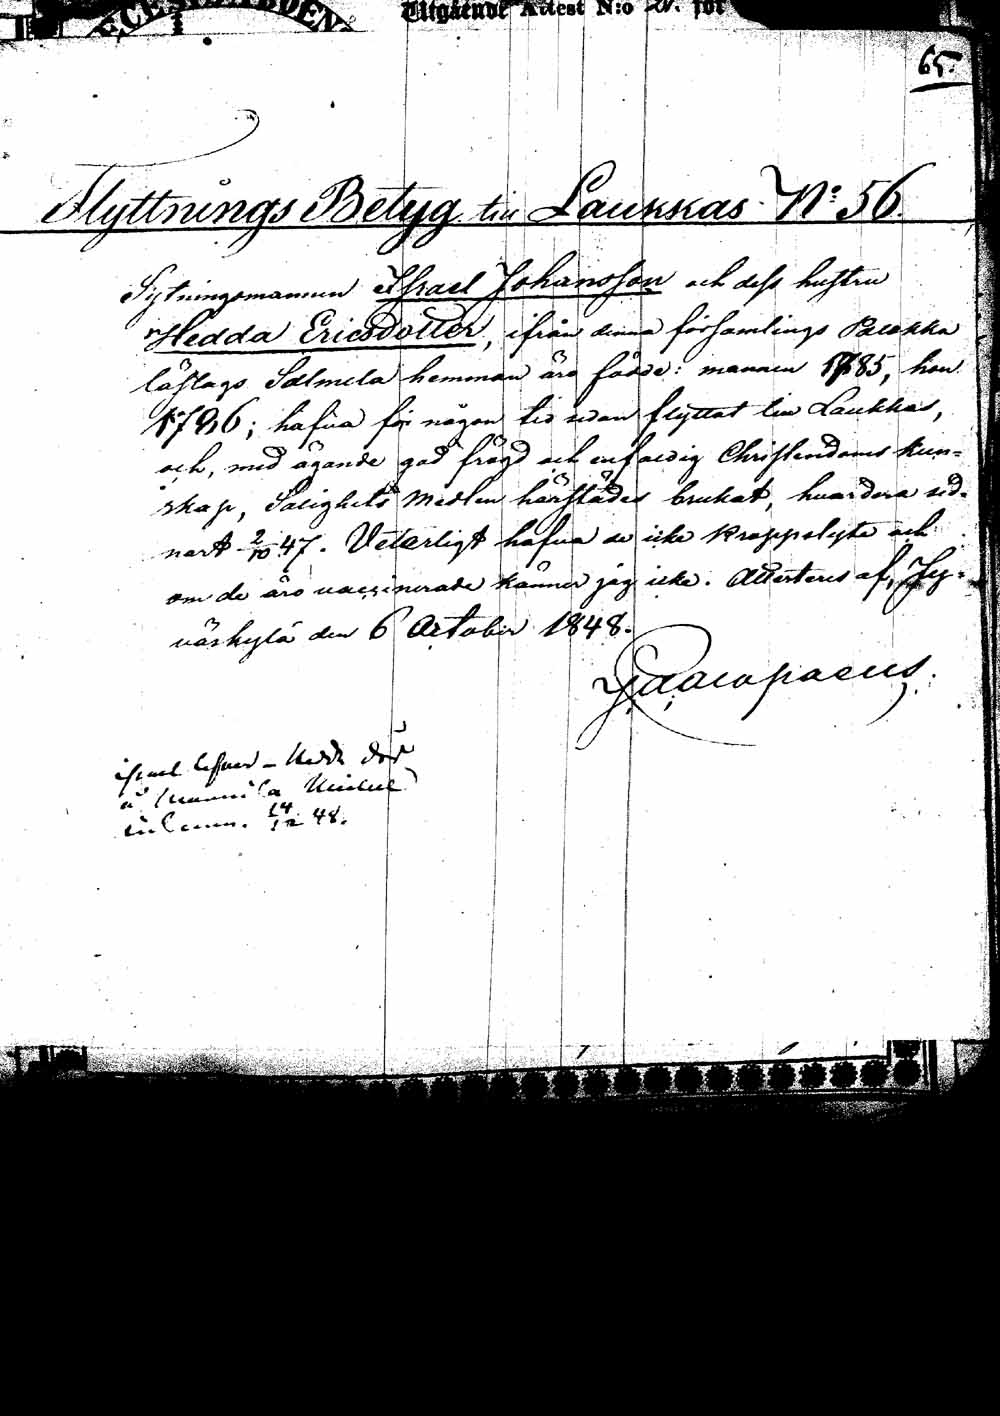 Utgående Attest N:o för
65.
Flyttnings Betyg till Laukkas N:o 56.
Sytningsmannen Israel Johansson och dess hustru
Hedda Ericsdotter, ifrån denna församlings Palokka
låftags Salmela hemman äro födde: mannen 1785, hon
1786; hafva för någon tid sedan flyttat till Laukkas,
och, med ägande god frägd och enfaldig Christendoms kun-
skap, Salighets Medlen härstädes brukat, hvardera sed-
nast 2/10 47. Veterligt hafva de icke kroppslyte och
om de äro vaccinerade känner jag icke. Attesteras af, Jy-
väskylä den 6 October 1848.
48.